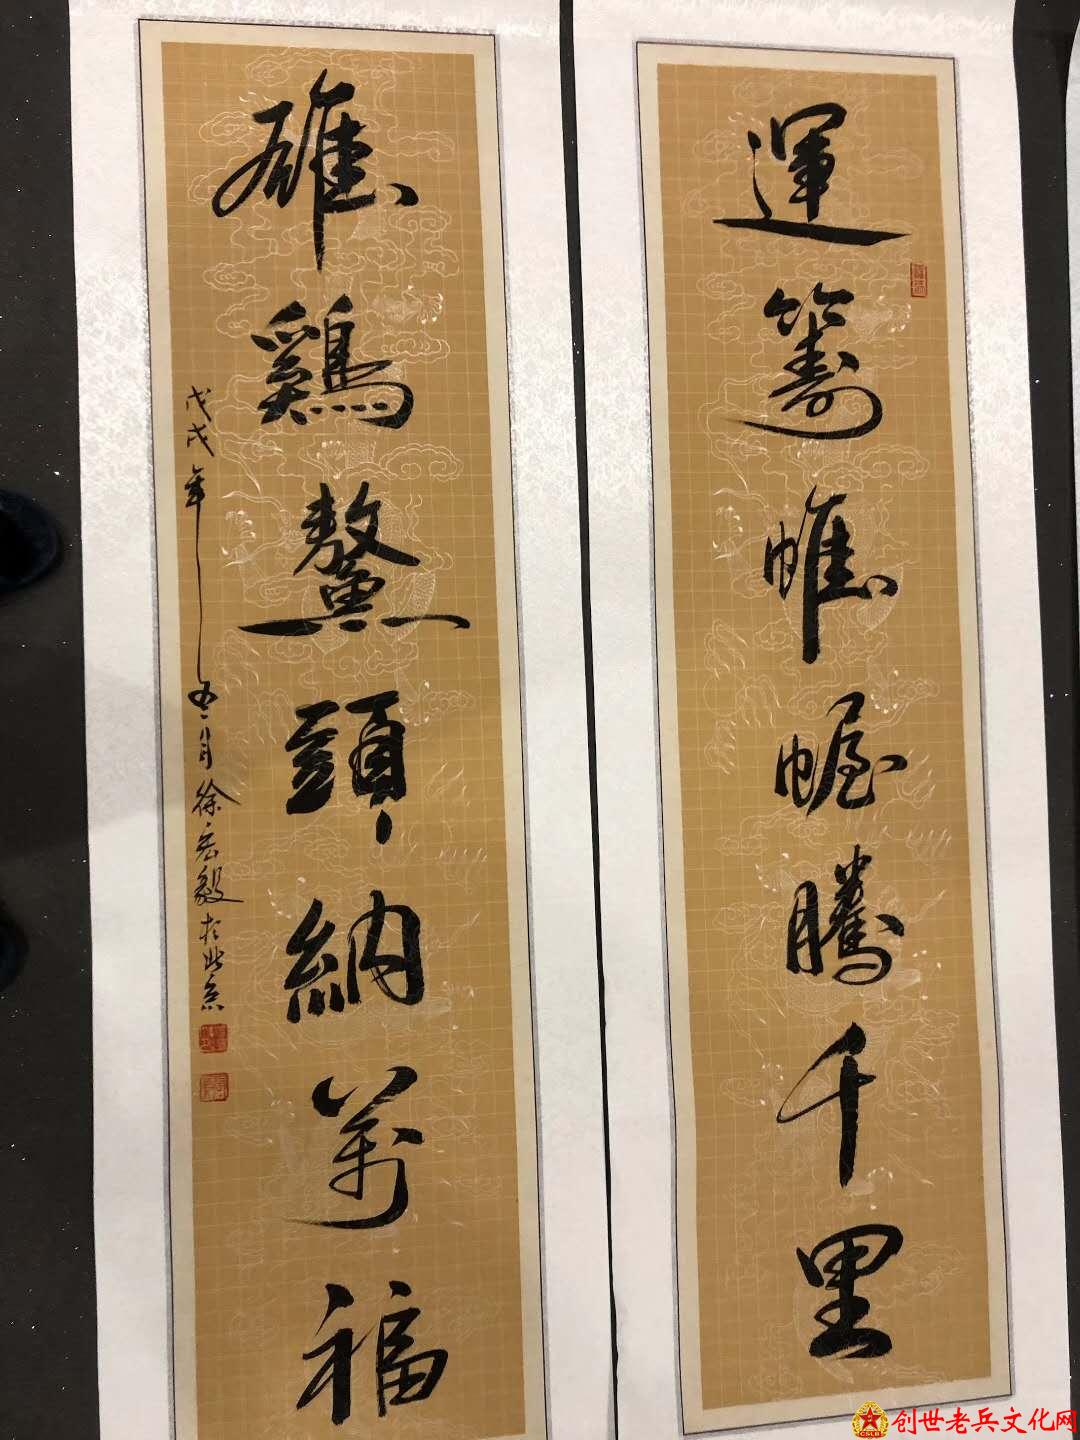 運籌帷幄騰千里
雄鷄鰲頭納萬福
戊戌年五月徐宏毅於北京
创世老兵文化网
CSLB